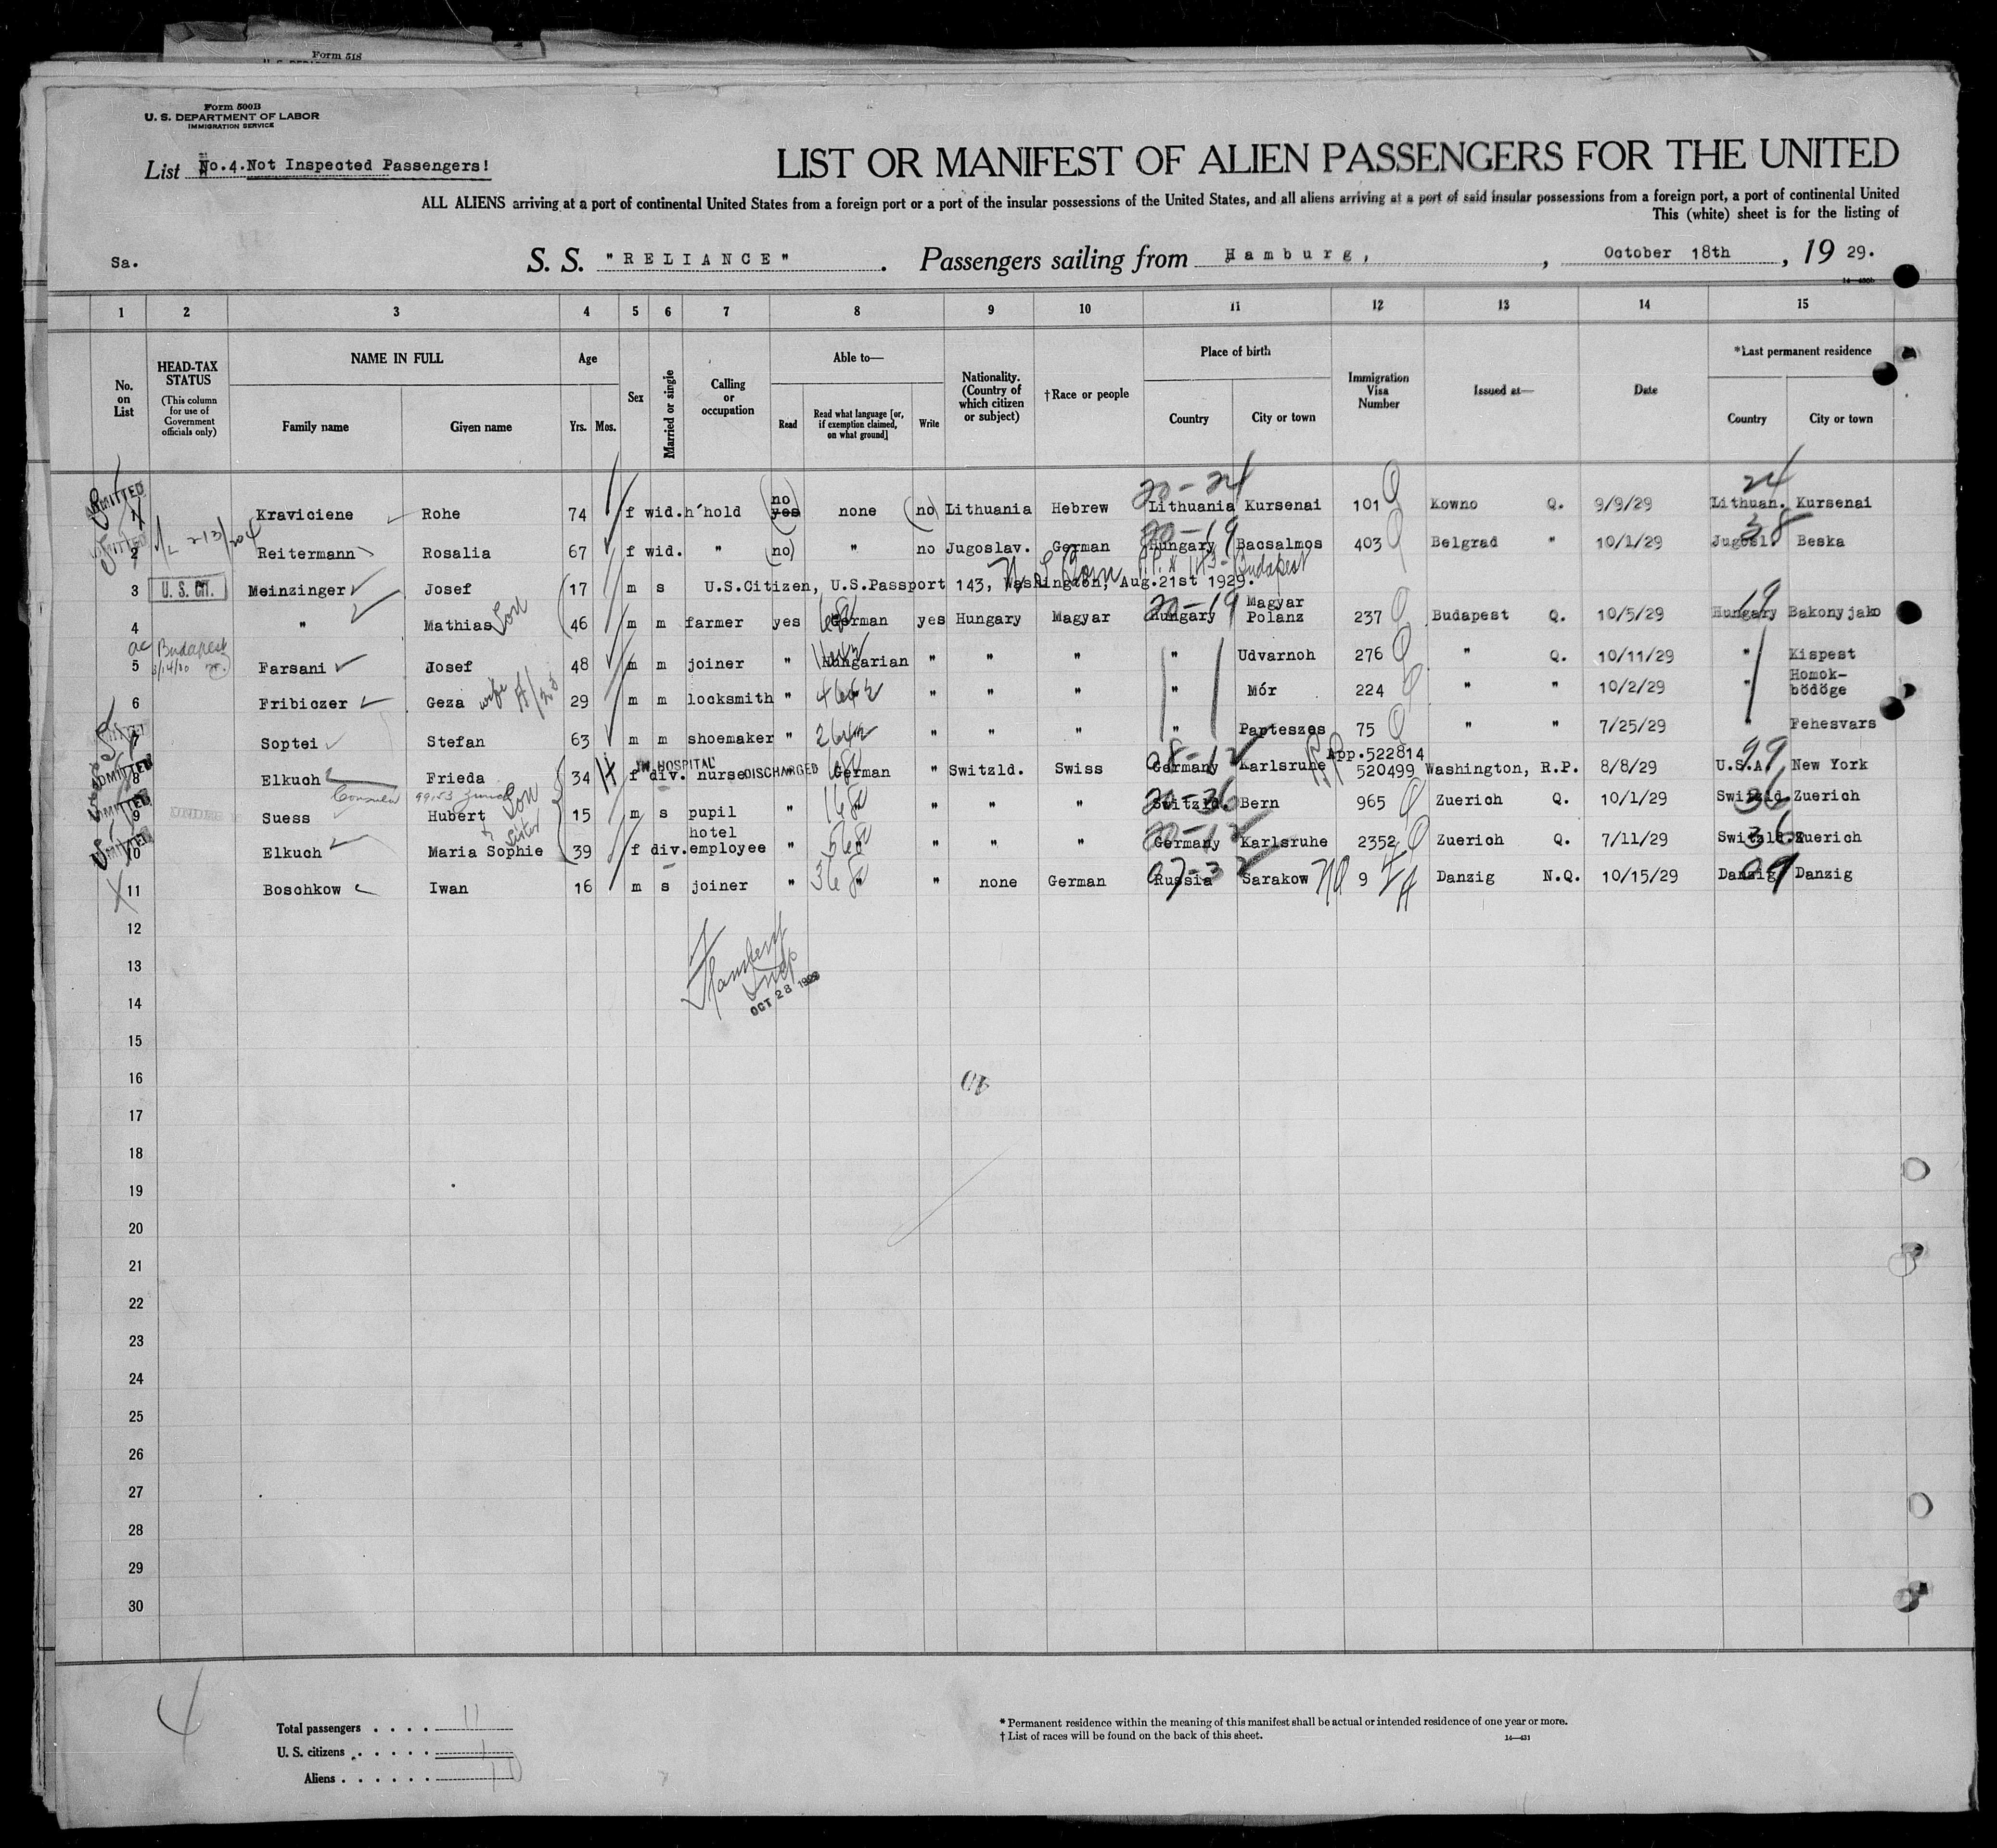 Form 518
Form 500B
U. S. DEPARTMENT OF LABOR
IMMIGRATION SERVICE
List No.4.Not Inspected Passengers!
LIST OR MANIFEST OF ALIEN PASSENGERS FOR THE UNITED
ALL ALIENS arriving at a port of continental United States from a foreign port or a port of the insular possessions of the United States, and all aliens arriving at a port of said insular possessions from a foreign port, a port of continental United
This (white) sheet is for the listing of
Sa. S. S. "RELIANCE". Passengers sailing from Hamburg, , October 18th , 19 29.
1 2 3 4 5 6 7 8 9 10 11 12 13 14 15
No. on List
HEAD-TAX STATUS (This column for use of Government officials only)
NAME IN FULL Family name Given name
Age Yrs. Mos.
Sex
Married or single
Calling or occupation
Able to— Read Read what language [or, if exemption claimed, on what ground] Write
Nationality. (Country of which citizen or subject)
†Race or people
Place of birth Country City or town
Immigration Visa Number
Issued at—
Date
*Last permanent residence Country City or town
20-24 24
ADMITTED Kraviciene Rohe 74 f wid. h'hold (no yes none (no) Lithuania Hebrew Lithuania Kursenai 101 Q Kowno Q. 9/9/29 Lithuan. Kursenai
20-19 38
2 Reitermann Rosalia 67 f wid. " (no) " no Jugoslav. German Hungary Bacsalmos 403 Q Belgrad " 10/1/29 Jugosl. Beska
3 U. S. CIT. Meinzinger Josef 17 m s U.S.Citizen, U.S.Passport 143, Washington, Aug.21st 1929.
4 " Mathias Son (46 m m farmer yes German yes Hungary Magyar 20-19 Hungary Magyar Polanz 237 Q Budapest Q. 10/5/29 19 Hungary Bakonyjako
Budapest
5 Farsani Josef 48 m m joiner " Hungarian " " " " Udvarnoh 276 Q " Q. 10/11/29 " Kispest
6 Fribiczer Geza wife 29 m m locksmith " " " " " Mór 224 Q " " 10/2/29 " Homok-bödöge
7 Soptei Stefan 63 m m shoemaker " " " " " Papteszes 75 Q " " 7/25/29 " Fehesvars
ADMITTED 8 Elkuch Frieda 34 IN HOSPITAL f div. nurse DISCHARGED German " Switzld. Swiss Germany Karlsruhe App.522814 520499 Washington, R.P. 8/8/29 99 U.S.A. New York
ADMITTED 9 Suess Hubert Son 15 m s pupil " " " " 20-36 Switzld. Bern 965 Q Zuerich Q. 10/1/29 36 Switzld. Zuerich
ADMITTED 10 Elkuch Maria Sophie sister 39 f div. hotel employee " " " " 20-12 Germany Karlsruhe 2352 Q Zuerich Q. 7/11/29 36 Switzld. Zuerich
11 Boschkow Iwan 16 m s joiner " " " none German Russia Sarakow 9 Danzig N.Q. 10/15/29 Danzig Danzig
12
13
OCT 28 1929
14
15
16
17
18
19
20
21
22
23
24
25
26
27
28
29
30
4
Total passengers . . . . 11
U. S. citizens . . . . . 1
Aliens . . . . . . 10
* Permanent residence within the meaning of this manifest shall be actual or intended residence of one year or more.
† List of races will be found on the back of this sheet.
14—431